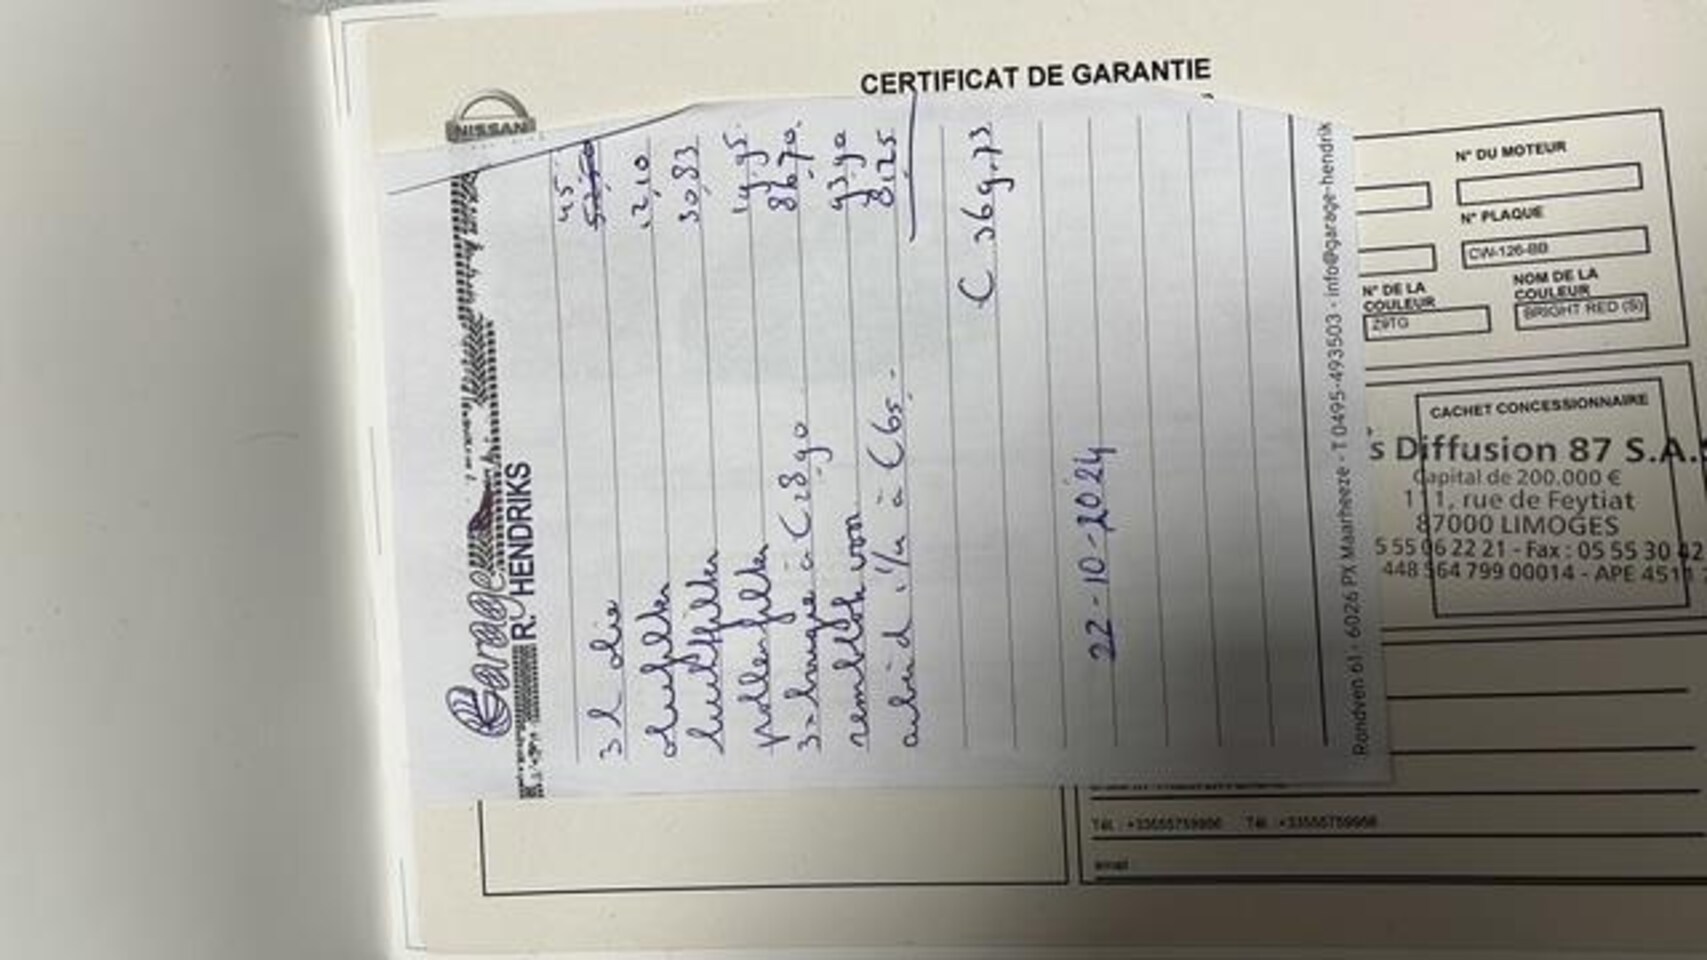 CERTIFICAT DE GARANTIE
NISSAN
Garage
R. HENDRIKS
3 L olie 45
oliefilter 12,10
luchtfilter 30,83
pollenfilter 14,95
3 x bougie à € 28,90 86,70
remblok voor
arbeid à € 65,- 81,25
€ 369,73
22-10-2024
Randven 61 - 6026 PX Maarheeze - T 0495-493503 - info@garage-hendrik
N° DU MOTEUR
N° PLAQUE
CW-126-BB
N° DE LA COULEUR
Z9TG
NOM DE LA COULEUR
BRIGHT RED (S)
CACHET CONCESSIONNAIRE
s Diffusion 87 S.A.S
Capital de 200.000 €
111, rue de Feytiat
87000 LIMOGES
5 55 06 22 21 - Fax : 05 55 30 42
448 564 799 00014 - APE 4511
Tél. : +33555759956 Tél. : +33555759956
email